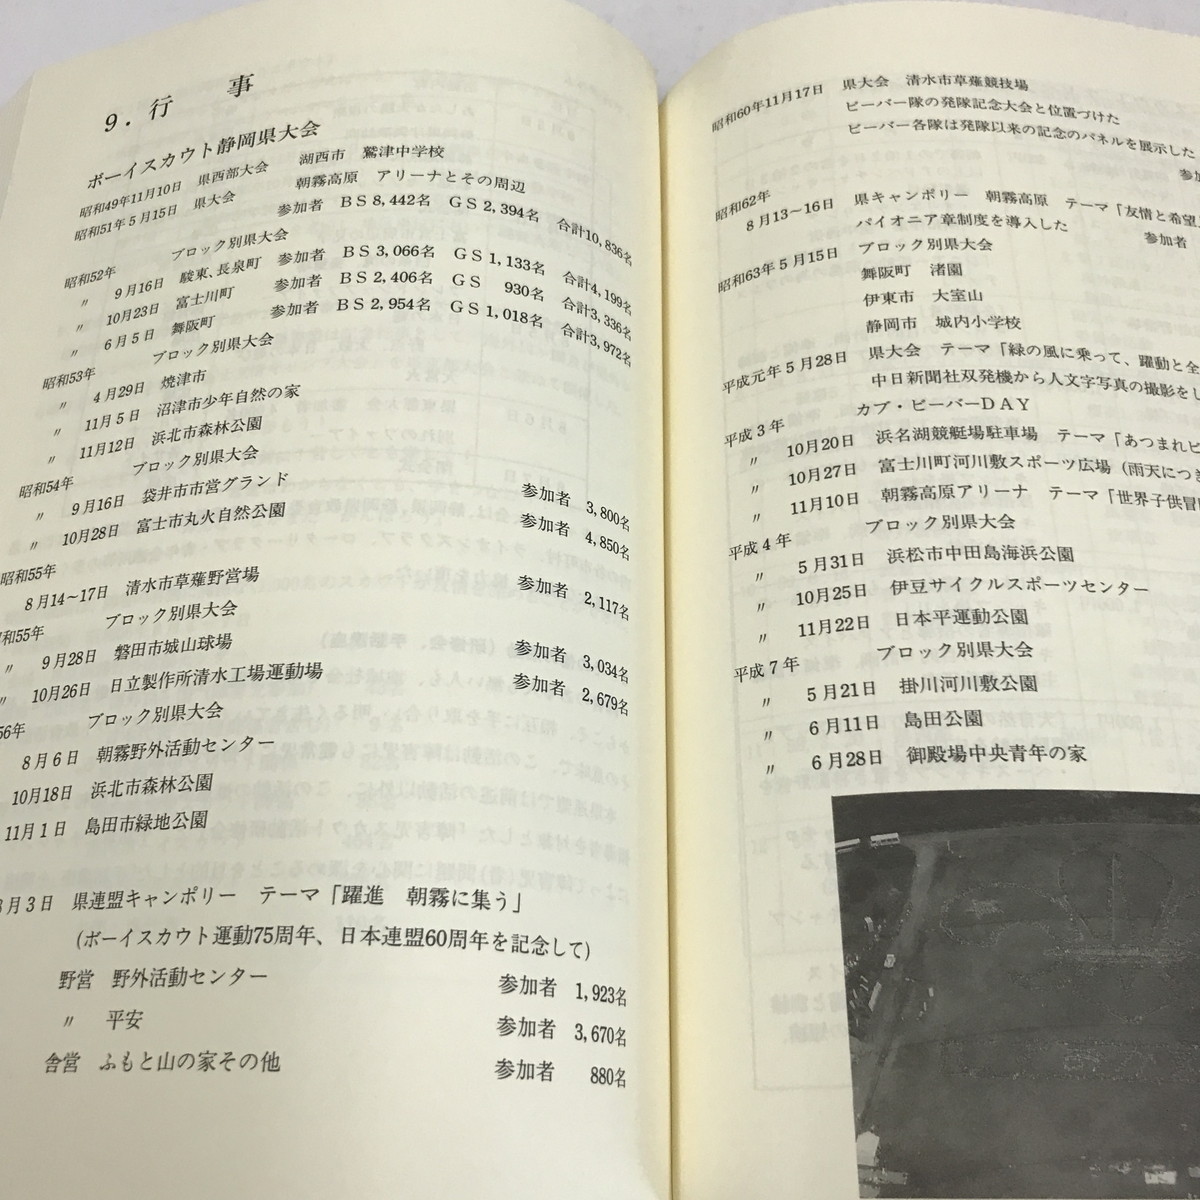 9．行　事
ボーイスカウト静岡県大会
昭和49年11月10日　県西部大会　湖西市　鷲津中学校
昭和51年5月15日　県大会　朝霧高原　アリーナとその周辺
参加者　ＢＳ8,442名　ＧＳ2,394名　合計10,836名
昭和52年　ブロック別県大会
〃　9月16日　駿東、長泉町　参加者　ＢＳ3,066名　ＧＳ1,133名　合計4,199名
〃　10月23日　富士川町　参加者　ＢＳ2,406名　ＧＳ　930名　合計3,336名
〃　6月5日　舞阪町　参加者　ＢＳ2,954名　ＧＳ1,018名　合計3,972名
昭和53年　ブロック別県大会
〃　4月29日　焼津市
〃　11月5日　沼津市少年自然の家
〃　11月12日　浜北市森林公園
昭和54年　ブロック別県大会
〃　9月16日　袋井市市営グランド　参加者　3,800名
〃　10月28日　富士市丸火自然公園　参加者　4,850名
昭和55年
8月14～17日　清水市草薙野営場　参加者　2,117名
昭和55年　ブロック別県大会
〃　9月28日　磐田市城山球場　参加者　3,034名
〃　10月26日　日立製作所清水工場運動場　参加者　2,679名
56年　ブロック別県大会
8月6日　朝霧野外活動センター
10月18日　浜北市森林公園
11月1日　島田市緑地公園
月3日　県連盟キャンポリー　テーマ「躍進　朝霧に集う」
(ボーイスカウト運動75周年、日本連盟60周年を記念して)
野営　野外活動センター　参加者　1,923名
〃　平安　参加者　3,670名
舎営　ふもと山の家その他　参加者　880名
昭和60年11月17日　県大会　清水市草薙競技場
ビーバー隊の発隊記念大会と位置づけた
ビーバー各隊は発隊以来の記念のパネルを展示した
参加
昭和62年
8月13～16日　県キャンポリー　朝霧高原　テーマ「友情と希望
パイオニア章制度を導入した　参加者
昭和63年5月15日　ブロック別県大会
舞阪町　渚園
伊東市　大室山
静岡市　城内小学校
平成元年5月28日　県大会　テーマ「緑の風に乗って、躍動と全
中日新聞社双発機から人文字写真の撮影をし
平成3年　カブ・ビーバーＤＡＹ
〃　10月20日　浜名湖競艇場駐車場　テーマ「あつまれビ
〃　10月27日　富士川町河川敷スポーツ広場（雨天につき
〃　11月10日　朝霧高原アリーナ　テーマ「世界子供冒
平成4年　ブロック別県大会
〃　5月31日　浜松市中田島海浜公園
〃　10月25日　伊豆サイクルスポーツセンター
〃　11月22日　日本平運動公園
平成7年　ブロック別県大会
〃　5月21日　掛川河川敷公園
〃　6月11日　島田公園
〃　6月28日　御殿場中央青年の家